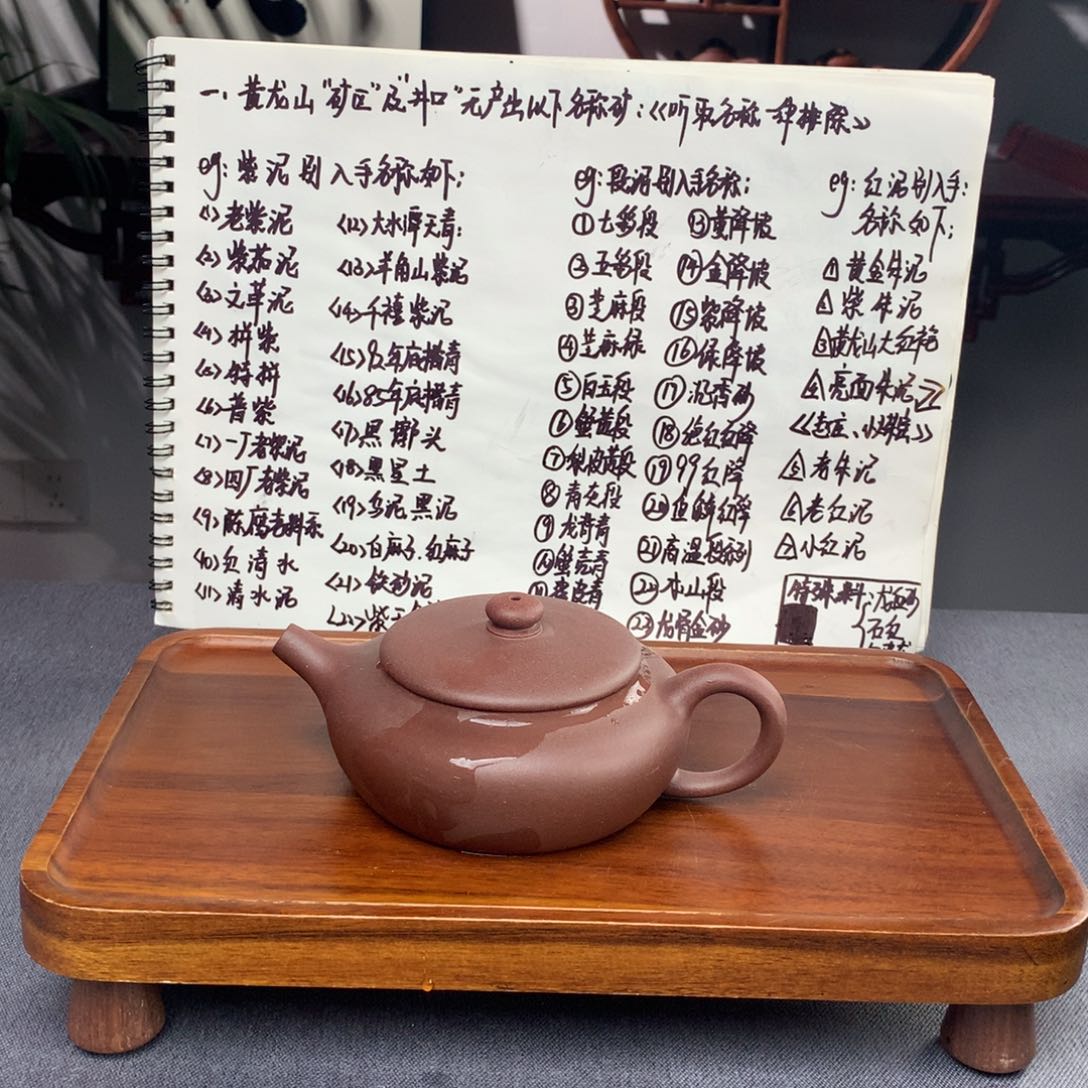 一、黄龙山"矿区"及"井口"无产出以下名称矿:《听取名称一律排除》
eg: 紫泥别入手名称如下;
<1>老紫泥
<2>紫茄泥
<3>文革泥
<4>拼紫
<5>特拼
<6>普紫
<7>一厂老紫泥
<8>四厂老紫泥
<9>陈腐老料系
<10>红清水
<11>清水泥
<12>大水潭天青:
<13>羊角山紫泥
<14>千禧紫泥
<15>82年底槽青
<16>85年底槽青
<17>黑墎头
<18>黑星土
<19>乌泥.黑泥
<20>白麻子.红麻子
<21>铁砂泥
eg: 段泥别入手名称;
①七彩段
②五彩段
③芝麻段
④芝麻绿
⑤白玉段
⑥蟹黄段
⑦梨皮黄段
⑧青灰段
⑨龙青青
⑩蟹壳青
⑬黄降坡
⑭金降坡
⑮紫降坡
⑯绿降坡
⑰沉香砂
⑱绝红红降
⑲99红降
⑳鱼鳞红降
㉑高温段系列
㉒本山段
㉓龙骨金砂
eg: 红泥别入手:
名称如下;
1 黄金朱泥
柴朱泥
③黄龙山大红袍
4 亮面朱泥
5 老朱泥
6 老红泥
7 小红泥
特殊料:龙血砂
石黄